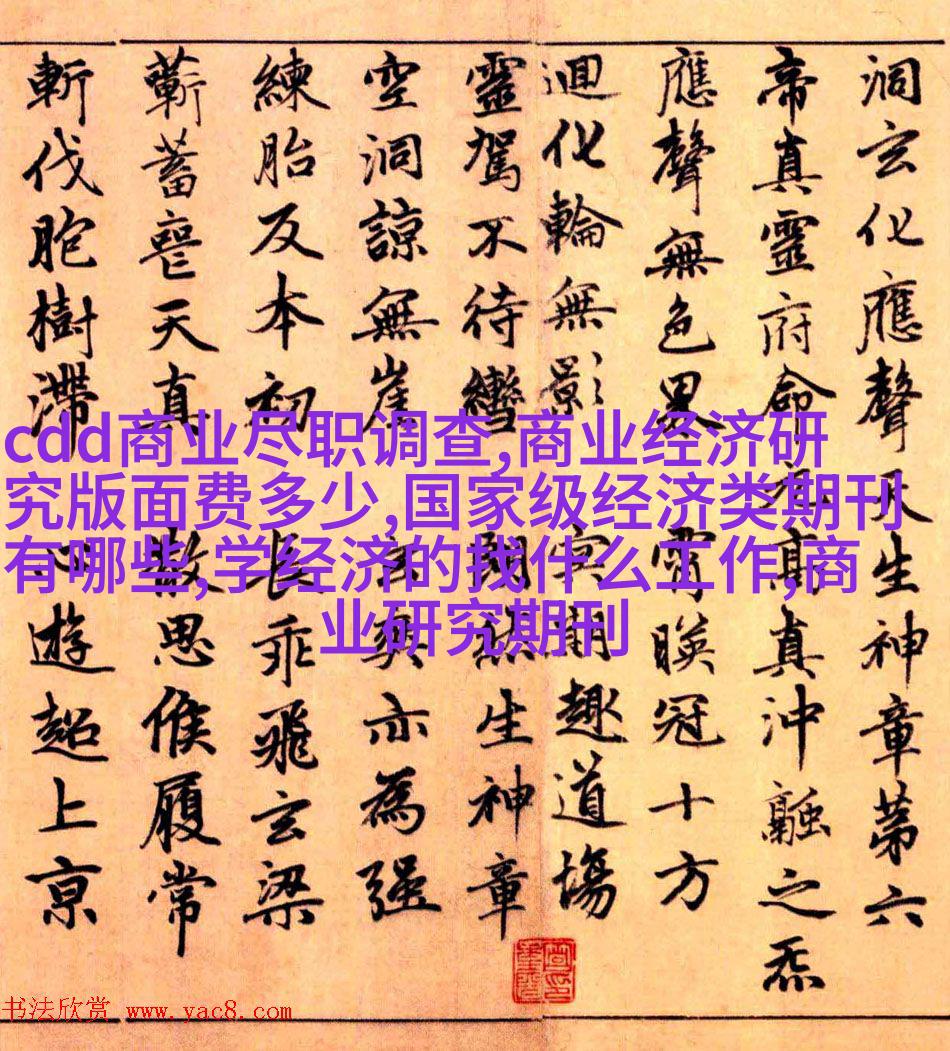 洞玄化應聲天生神章苐六
帝真靈府命元高真沖融之炁
應聲無色界霄暎冠十方
迴化輪無影冥期趣道場
靈駕不待轡朗然生神章
空洞諒無崖玄爽亦為强
練胎反本初長乖飛玄梁
蘄蓄喪天真散思候履常
斬伐胞樹滯心遊超上京
cdd商业尽职调查,商业经济研
究版面费多少,国家级经济类期刊
有哪些,学经济的找什么工作,商
业研究期刊
书法欣赏 www.yac8.com